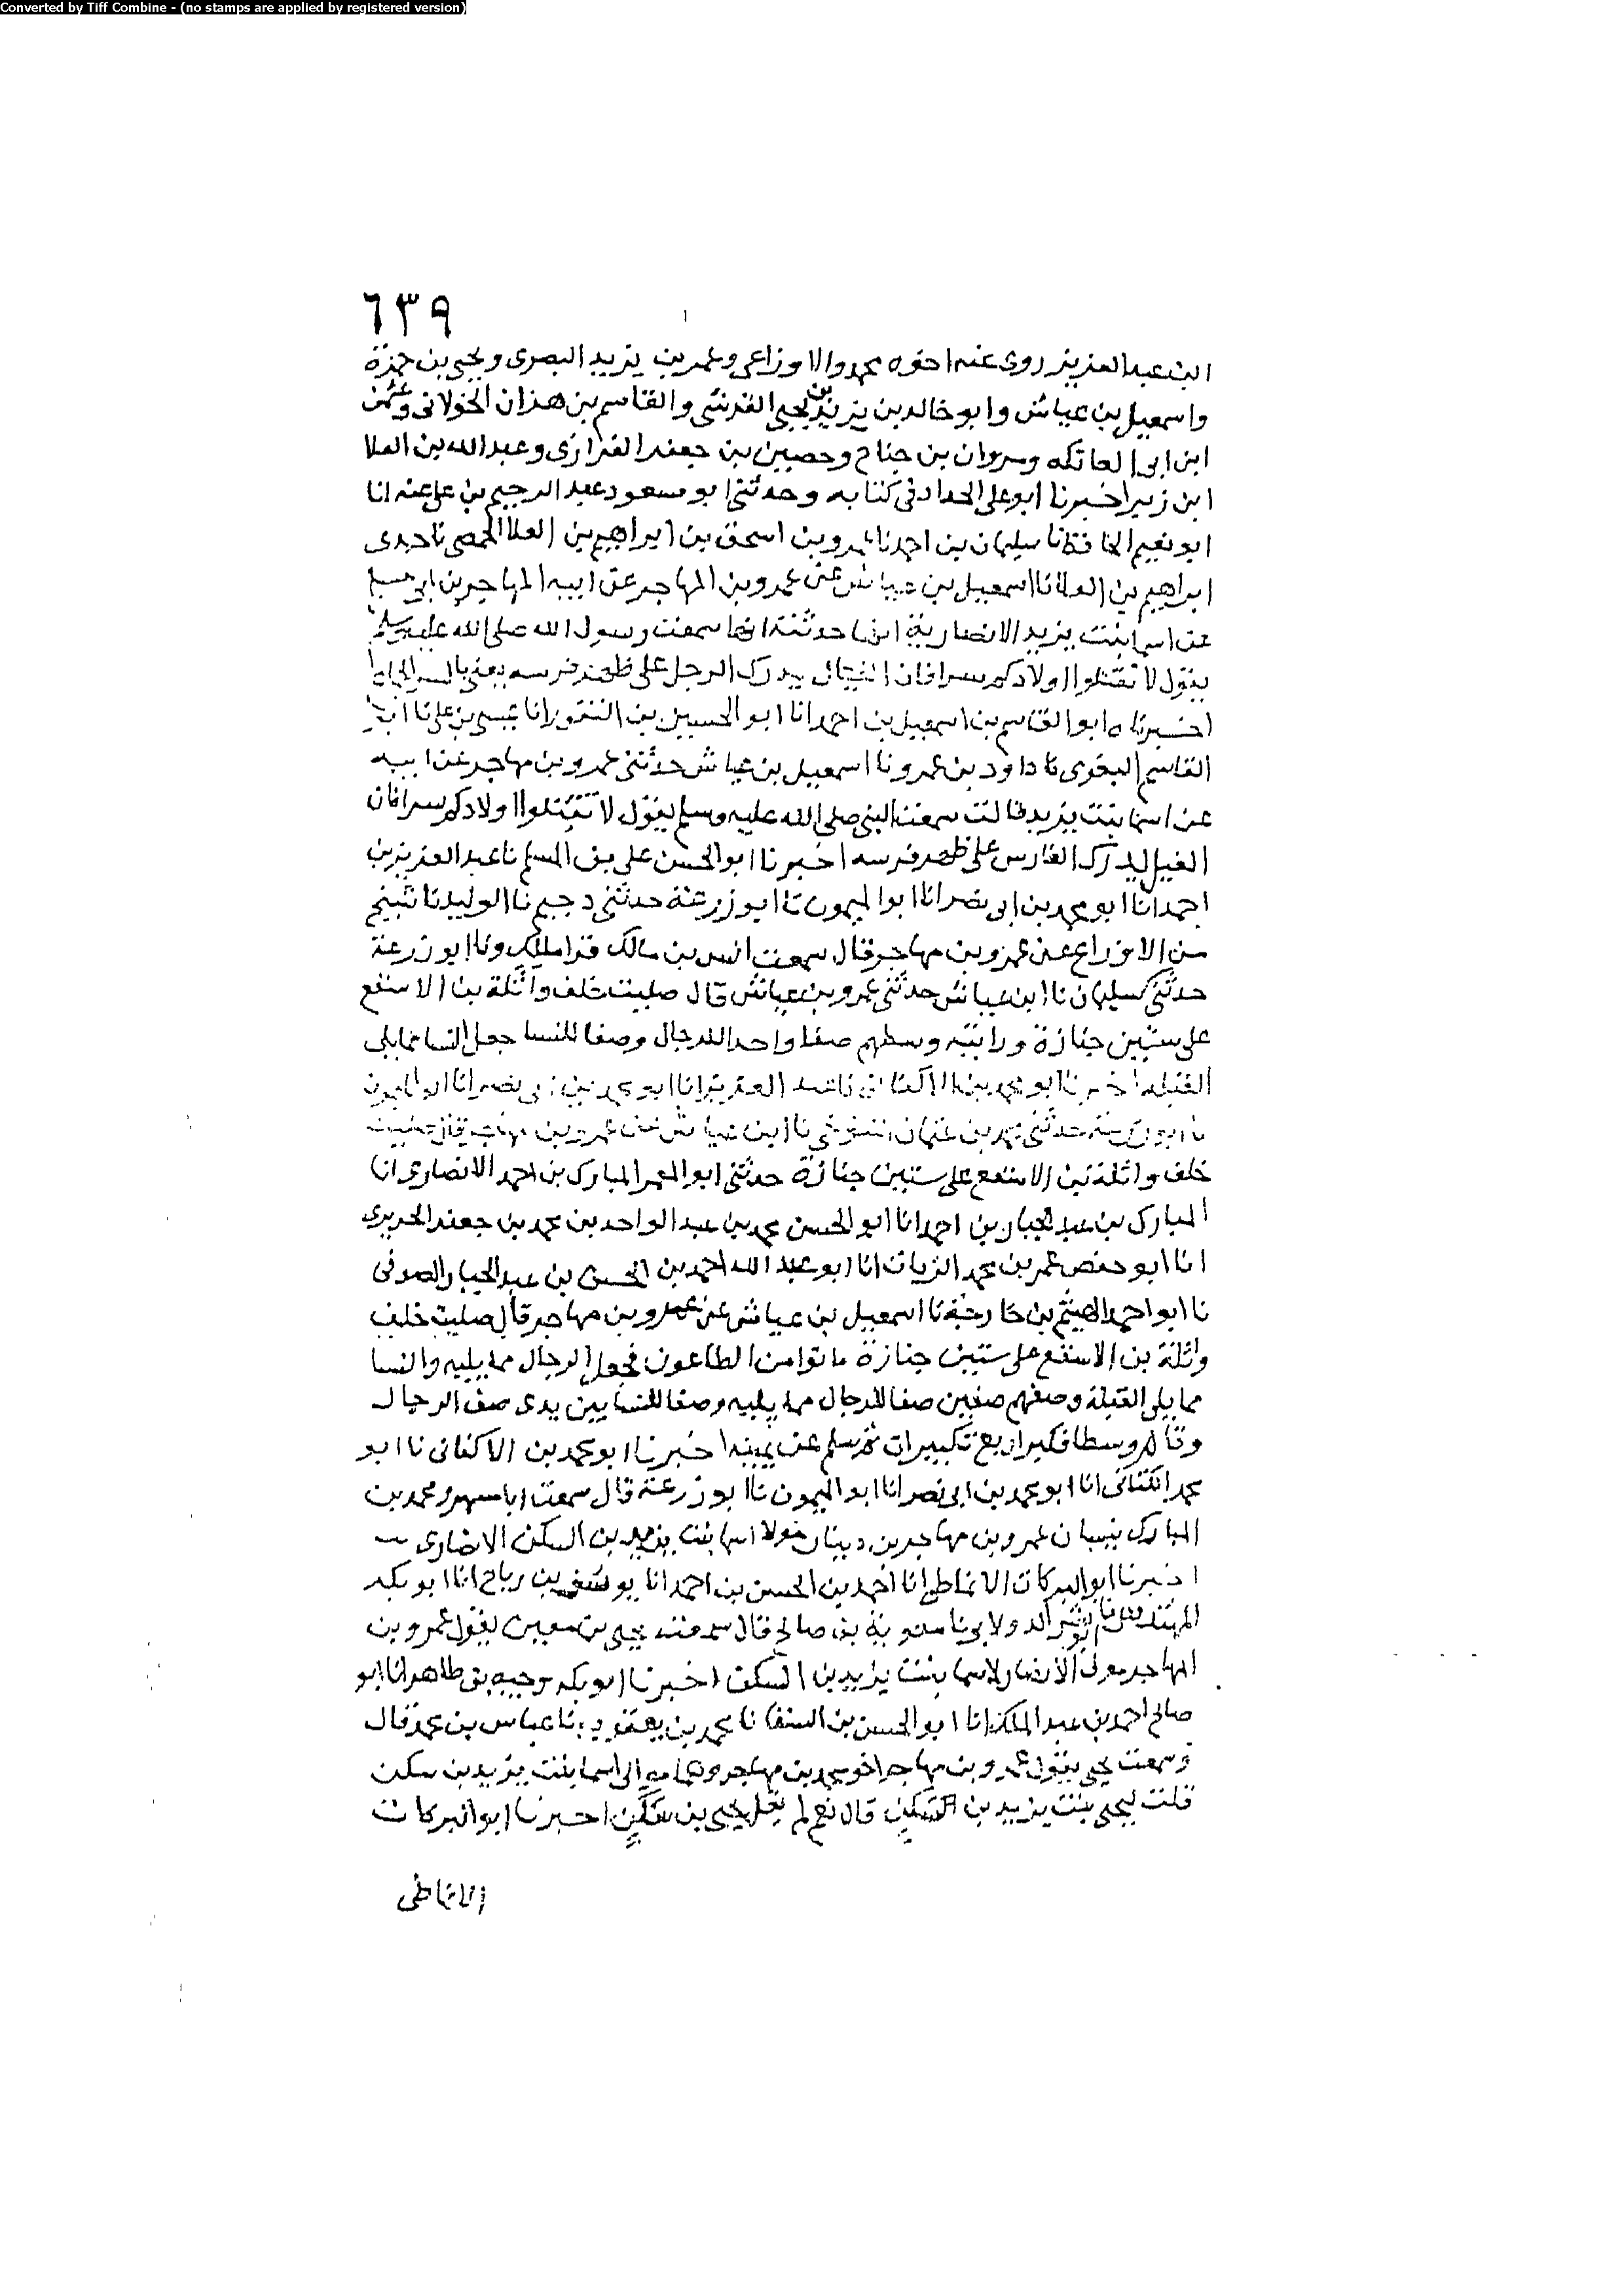 Converted by Tiff Combine - (no stamps are applied by registered version)
٦٣٩
ابن عبد العزيز روى عنه اخوه محمد والاوزاعي وعمر بن يزيد البصرى ويحيى بن حمزة
واسمعيل بن عياش وابو خالد بن يزيد بن يحيى القرشى والقاسم بن هذان الخولانى وعثمن
ابن ابى العاتكه ومروان بن جناح وحصين بن جعفر الفزارى وعبد الله بن العلا
ابن زبر اخبرنا ابو على الحداد فى كتابه وحدثنى ابو مسعود عبد الرحيم بن على عنه انا
ابو نعيم الحافظ نا سليمان بن احمد نا عمرو بن اسحق بن ابراهيم بن العلا الحمصى نا جدى
ابراهيم بن العلا نا اسمعيل بن عياش عن عمرو بن المهاجر عن ابيه المهاجر بن ابى مسلم
عن اسما بنت يزيد الانصارية انها حدثته انها سمعت رسول الله صلى الله عليه وسلم
يقول لا تقتلوا اولادكم سرا فان الغيال يدرك الرجل على ظهر فرسه يعنى بالسر الجماع
اخبرناه ابو القاسم بن اسمعيل بن احمد انا ابو الحسين بن النقور انا عيسى بن على انا ابو
القاسم البغوى نا داود بن عمرو نا اسمعيل بن عياش حدثنى عمرو بن مهاجر عن ابيه
عن اسما بنت يزيد قالت سمعت النبى صلى الله عليه وسلم يقول لا تقتلوا اولادكم سرا فان
الغيل ليدرك الفارس على ظهر فرسه اخبرنا ابو الحسن على بن المسلم نا عبد العزيز بن
احمد انا ابو محمد بن ابى نصر انا ابو الميمون نا ابو زرعة حدثنى دحيم نا الوليد نا شيخ
من الاوزاع عن عمرو بن مهاجر قال سمعت انس بن مالك قرا ملك ونا ابو زرعة
حدثنى سليمان نا ابن عياش حدثنى عمرو بن عياش قال صليت خلف واثلة بن الاسقع
على ستين جنازة ورايته وسطهم صفا واحدا للرجال وصفا للنسا جعل النسا مما يلى
القبله اخبرنا ابو محمد بن الاكفانى نا عبد العزيز انا ابو محمد بن ابى نصر انا ابو الميمون
نا ابو زرعة حدثنى محمد بن عثمان التنوخى نا ابن عياش عن عمرو بن مهاجر قال صليت
خلف واثلة بن الاسقع على ستين جنازة حدثنى ابو المعمر المبارك بن احمد الانصارى انا
المبارك بن عبد الجبار بن احمد انا ابو الحسن محمد بن عبد الواحد بن محمد بن جعفر الحريرى
انا ابو حفص عمر بن محمد الزيات انا ابو عبد الله احمد بن الحسن بن عبد الجبار الصوفى
نا ابو احمد الهيثم بن خارجة نا اسمعيل بن عياش عن عمرو بن مهاجر قال صليت خلف
واثلة بن الاسقع على ستين جنازة ماتوا من الطاعون فجعل الرجال مما يليه والنسا
مما يلى القبلة وصفهم صفين صفا للرجال مما يليه وصفا للنسا بين يدى صف الرجال
وقام وسطا فكبر اربع تكبيرات ثم سلم عن يمينه اخبرنا ابو محمد بن الاكفانى نا ابو
محمد الكتانى انا ابو محمد بن ابى نصر انا ابو الميمون نا ابو زرعة قال سمعت ابا مسهر ومحمد بن
المبارك ينسبان عمرو بن مهاجر بن دينار مولا اسما بنت يزيد بن السكن الانصارى
اخبرنا ابو البركات الانماطى انا احمد بن الحسن بن احمد انا يوسف بن رباح انا ابو بكر
المهندس نا ابو بشر الدولابى نا معوية بن صالح قال سمعت يحيى بن معين يقول عمرو بن
المهاجر مولى الانصار لاسما بنت يزيد بن السكن اخبرنا ابو بكر وجيه بن طاهر انا ابو
صالح احمد بن عبد الملك انا ابو الحسن بن السقا نا محمد بن يعقوب نا عباس بن محمد قال
وسمعت يحيى يقول عمرو بن مهاجر اخو محمد بن مهاجر وهما موالى اسما بنت يزيد بن سكن
قلت ليحيى بنت يزيد بن السكن قال نعم لم يقل يحيى بن سكن اخبرنا ابو البركات
الانماطى